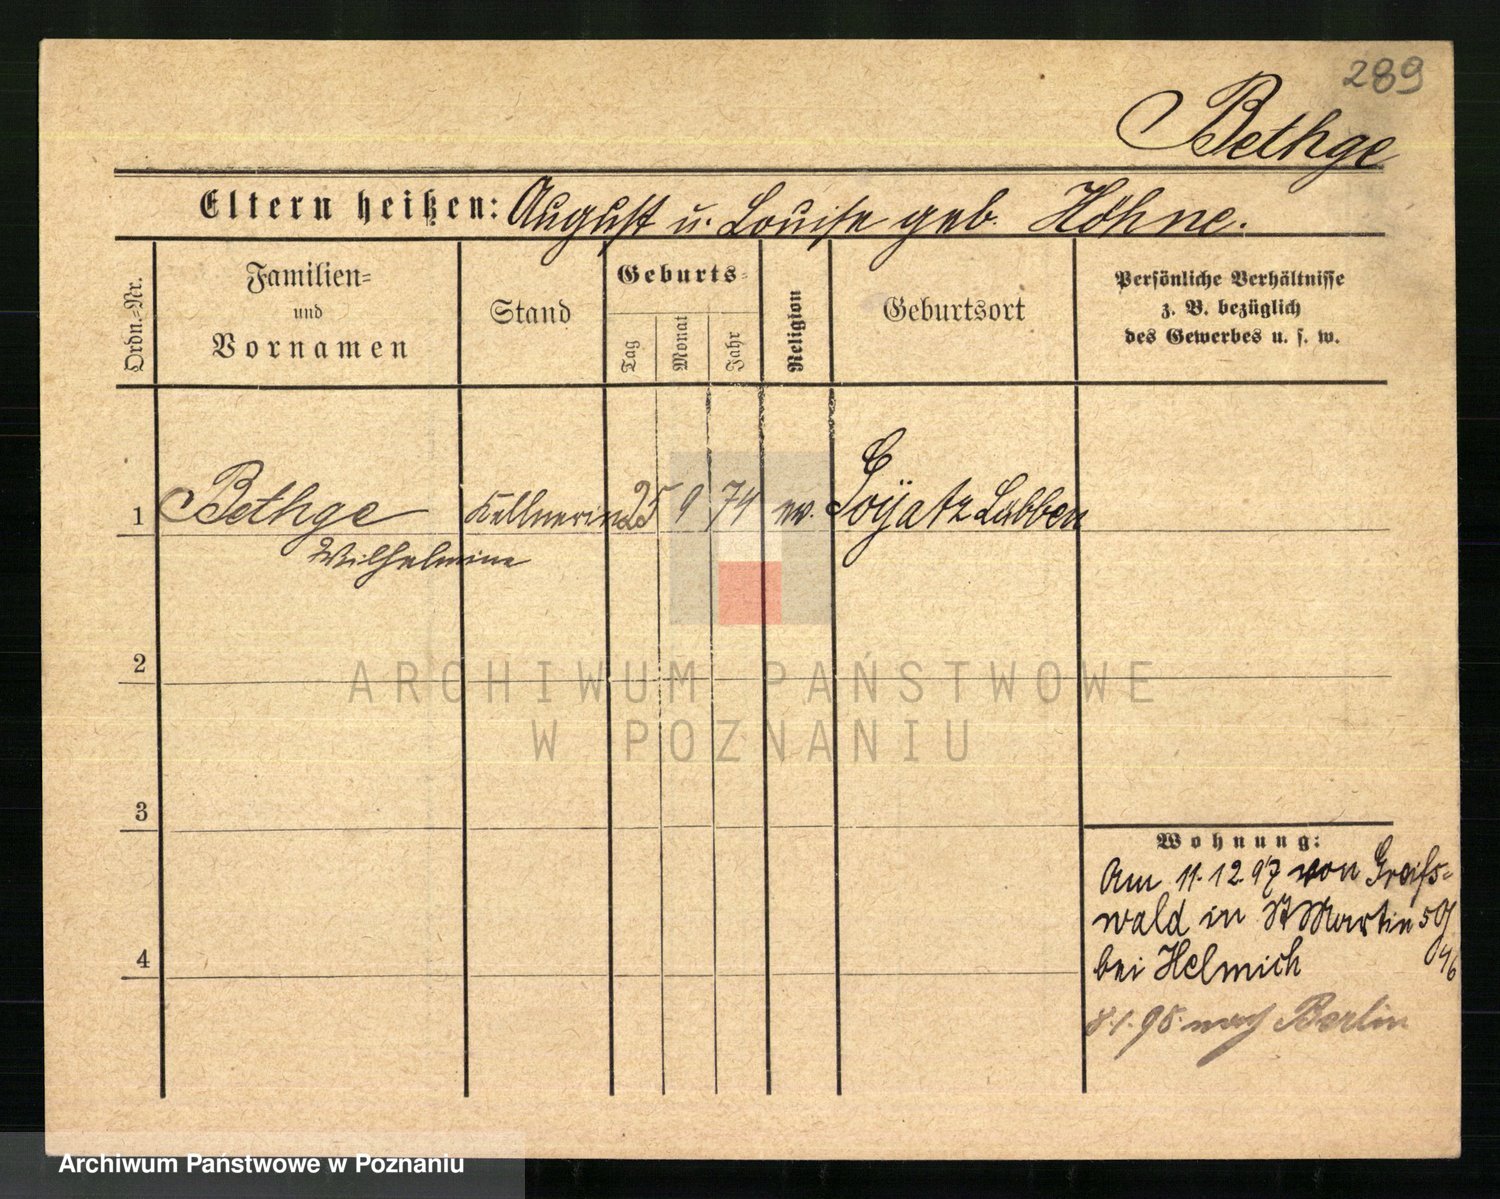 289
Bethge
Eltern heißen: August u. Louise geb. Höhne.
Ordn.=Nr.
Familien=
und
Vornamen
Stand
Geburts=
Tag
Monat
Jahr
Religion
Geburtsort
Persönliche Verhältnisse
z. B. bezüglich
des Gewerbes u. s. w.
1 Bethge Kellnerin 25 9 74 ev. Lübben
Wilhelmine
2
ARCHIWUM PAŃSTWOWE
W POZNANIU
3
Wohnung:
Am 11.12.97 von Greifs=
wald in St Martin
4
bei Helmich
8.1.98 nach Berlin
Archiwum Państwowe w Poznaniu